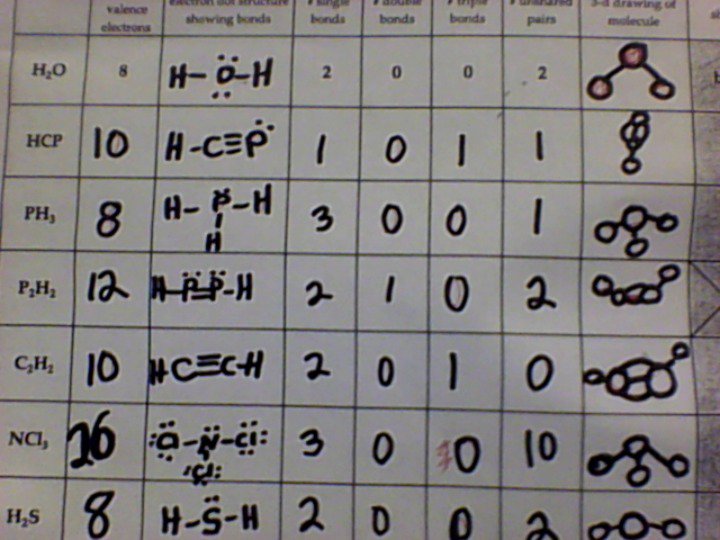 valence electrons
electron dot structure showing bonds
# single bonds
# double bonds
# triple bonds
# unshared pairs
3-d drawing of molecule
H₂O 8 H-Ö-H 2 0 0 2
HCP 10 H-C≡P 1 0 1 1
PH₃ 8 H-P-H 3 0 0 1
H
P₂H₂ 12 H-P=P-H 2 1 0 2
C₂H₂ 10 HC≡C-H 2 0 1 0
NCl₃ 26 :Cl-N-Cl: 3 0 0 10
:Cl:
H₂S 8 H-S-H 2 0 0 2